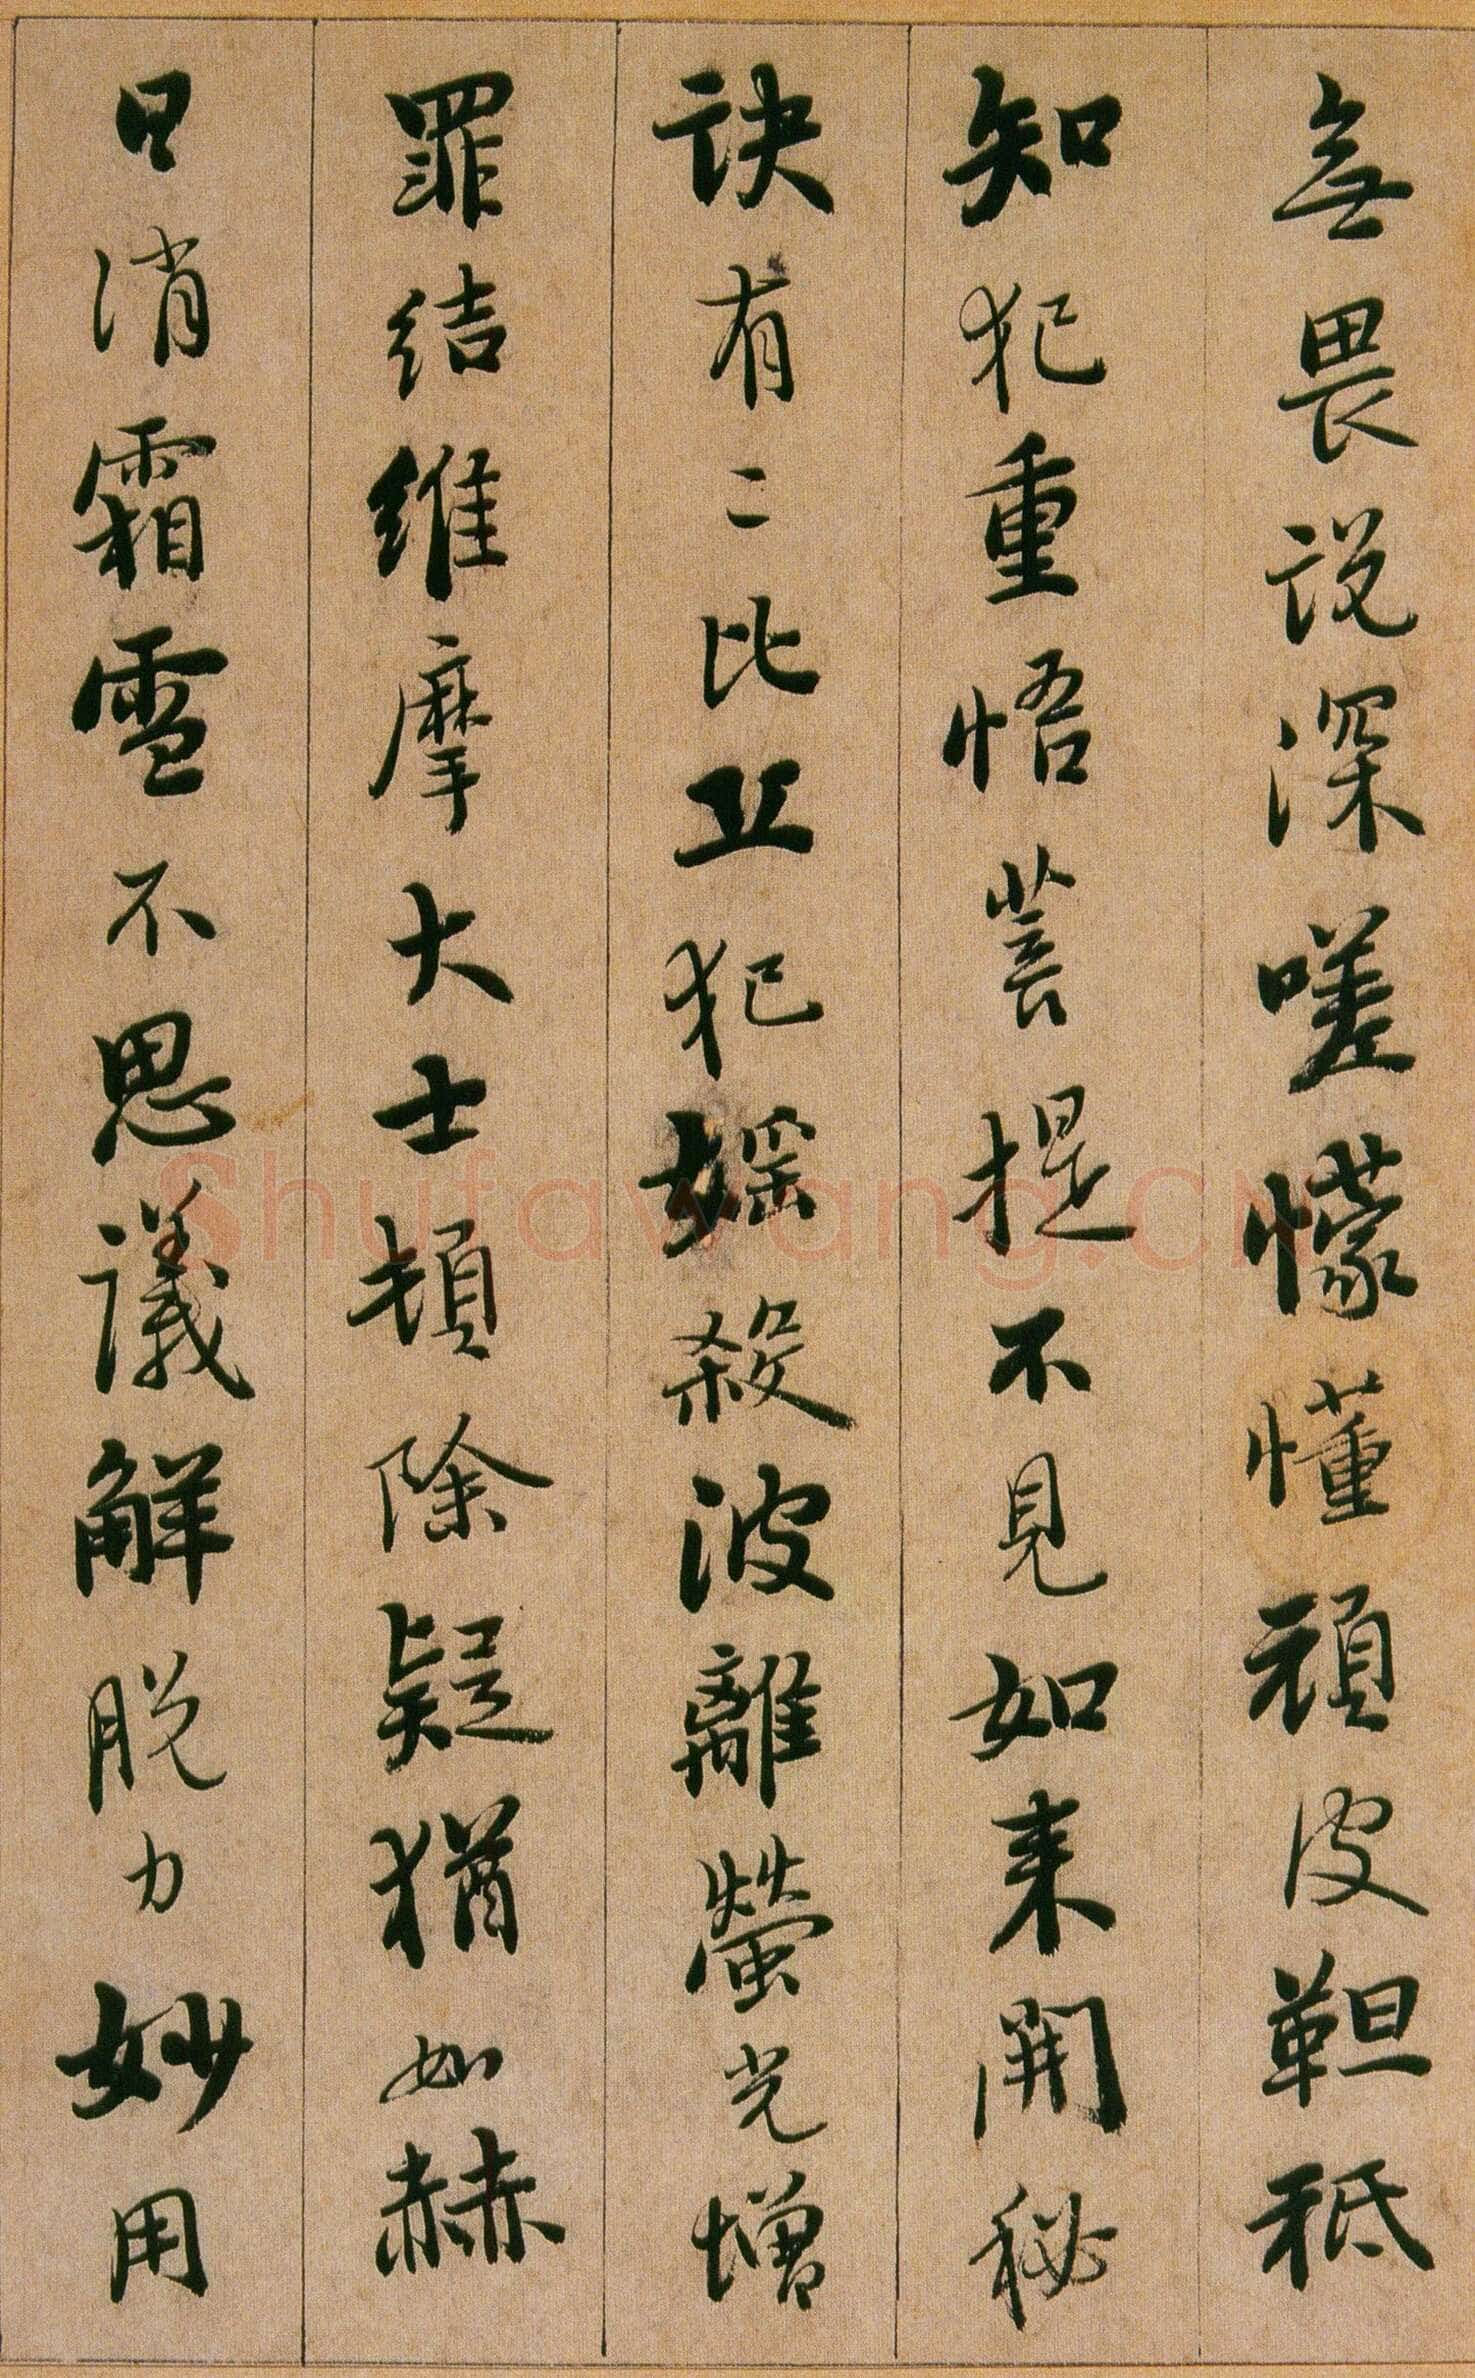 無畏説深嗟懞懂頑皮靼秪
知犯重悟菩提不見如来開秘
訣有二比丘犯媱殺波離螢光增
罪結維摩大士頓除疑猶如赫
日消霜雪不思議解脱力妙用
Shufawang.CN